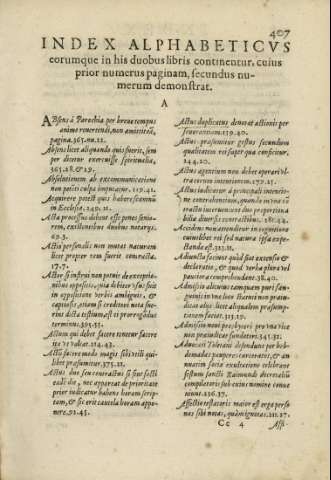 407
INDEX ALPHABETICVS
eorumque in his duobus libris continentur, cuius
prior numerus paginam, secundus nu-
merum demonstrat.
A
ABsens à Parochia per breue tempus
animo reuertendi, non amittit
pagina. 365. nu. 11.
Absens licet aliquando quis fuerit, sem-
per dicitur exercuisse spiritualia,
365. 28. & 29.
Absolutionem ab excommunicatione
non petiis culpa imputatur. 119. 41.
Acquirere potest quis habere
in Ecclesia. 249. 11.
Acta processus debent esse penes senio-
rem, existentibus duobus notarijs.
69. 3.
Actio personalis non mutat naturam
licet propter rem fuerit contracta.
17. 7.
Actor si instes non potuit de exceptio-
nibus oppositis, quia debitor
in oppositione verbis ambiguis, &
capiosis, etiam si creditori nota fue-
rint dicta testium, est ei prorogandus
terminus. 395. 55.
Actum qui debet facere tenetur facere
 vt valeat. 224. 43.
Actus facere modo magis sibi vtili qui-
libet præsumitur. 375. 11.
Actus duo seu contractus si sint facti
eadē die, nec appareat de prioritate
prior iudicatur habens horam scrip-
tam, & sic erit cautela horam appo-
nere. 92. 45.
Actus duplicatus denotat actionis per
seuerantiam. 139. 40.
Actus præsumitur gestus secundum
qualitatem rei super qua conficitur.
244. 20.
Actus agentium non debet operari vl-
tra eorum intentionem. 179. 25.
Actus iudicatur à principali intentio-
ne contrahentium, quando in
tractu interueniunt duo propter
bilia diuersi contractus. 281. 44.
Accidens non attenditur in cognitione
cuiuslibet rei sed natura ipsa expe-
ctanda est. 312. 11.
Adiuncta faciunt quid sit extensio &
declaratio, & quod verba plura vel
pauciora comprehendant. 38. 40.
Admissio alicuius tamquam puri san-
guinis in vna hora
dicat alijs licet aliqualem præsump-
tionem faciat. 315. 19.
Admissio noui presbyteri pro vna vice
non præiudicat fundatori. 345. 31.
Aduocati Toletani defendunt per heb-
domadas pauperes carceratos, & an
nuatim facta exultatione celebrant
festum sancti Raimundi decretalium
compilatoris sub cuius nomine conue
niunt. 126. 37.
Affectio testatoris maior est erga perso-
nas sibi notas, quàm ignotas. 211. 17.
Cc 4
Affi-